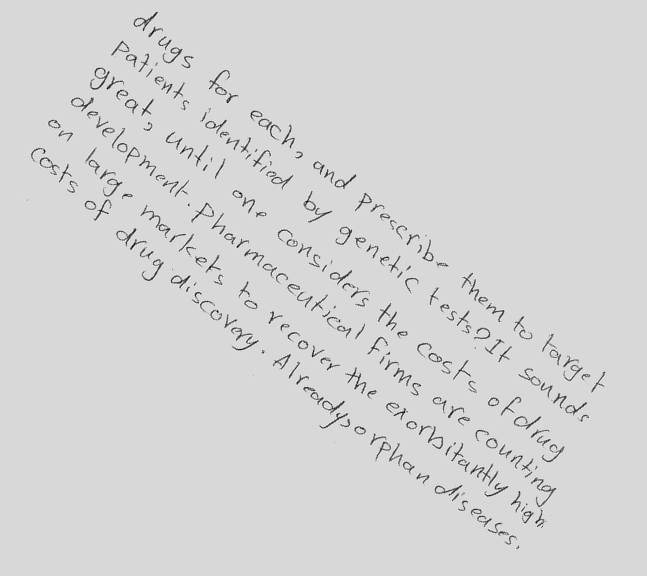 drugs for each, and prescribe them to target
Patients identified by genetic tests? It sounds
great, until one considers the costs of drug
development. Pharmaceutical firms are counting
on large markets to recover the exorbitantly high
costs of drug discovery. Already, orphan diseases.